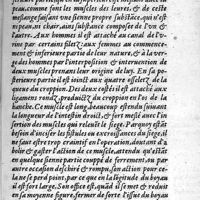 peau, comme sont les muscles des leures, & de ceste
meslange faisant une sienne propre substãce, qui n'est
ny peau, ny chair, ains substance composee de l'un &
l'autre. Aux hommes il est attaché au canal de l'u-
rine par certains filetz: aux femmes au commence-
ment & inferieure partie de leur nature, & à la ver-
ge des hommes par l'interposition & intervention de
deux muscles prenans leur origine de luy. En sa po-
sterieure partie il est joinct aux quatre osseletz de la
queue du croppion. Des deux costés il est attaché aux
ligamens rondz, produictz du croppion en l'os de la
hanche. Ce muscle est long, beaucoup estendu suivant
la longueur de l'intestin droict, & fort meslé avec l'in-
sertion des muscles qui releuẽt le siege. Parquoy estãt
besoin d'inciser les fistules ou excroissances du siege, il
ne faut estre trop craintif en l'operation, doutant d'a-
bolir & gaster l'action de ce muscle, attendu qu'estãt
en quelque sienne partie couppé de ferrement, ou par
autre occasion dechiré & rompu, son action pour ce-
la ne se perd point, par ce que la longueur du boyau
il est fort large. Son office est, quãd il se met & reduit
en sa moyenne figure, fermer de sorte l'issue du boyau